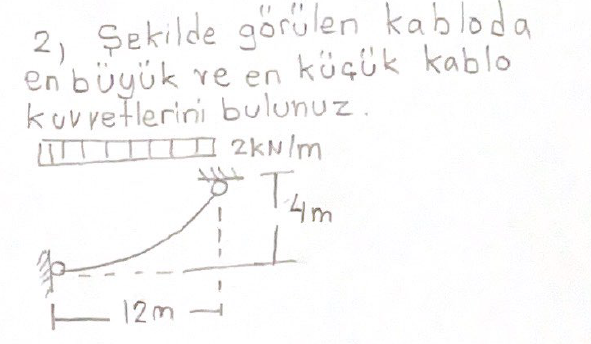 2) Şekilde görülen kabloda
en büyük ve en küçük kablo
kuvvetlerini bulunuz.
2kN/m
4m
12m